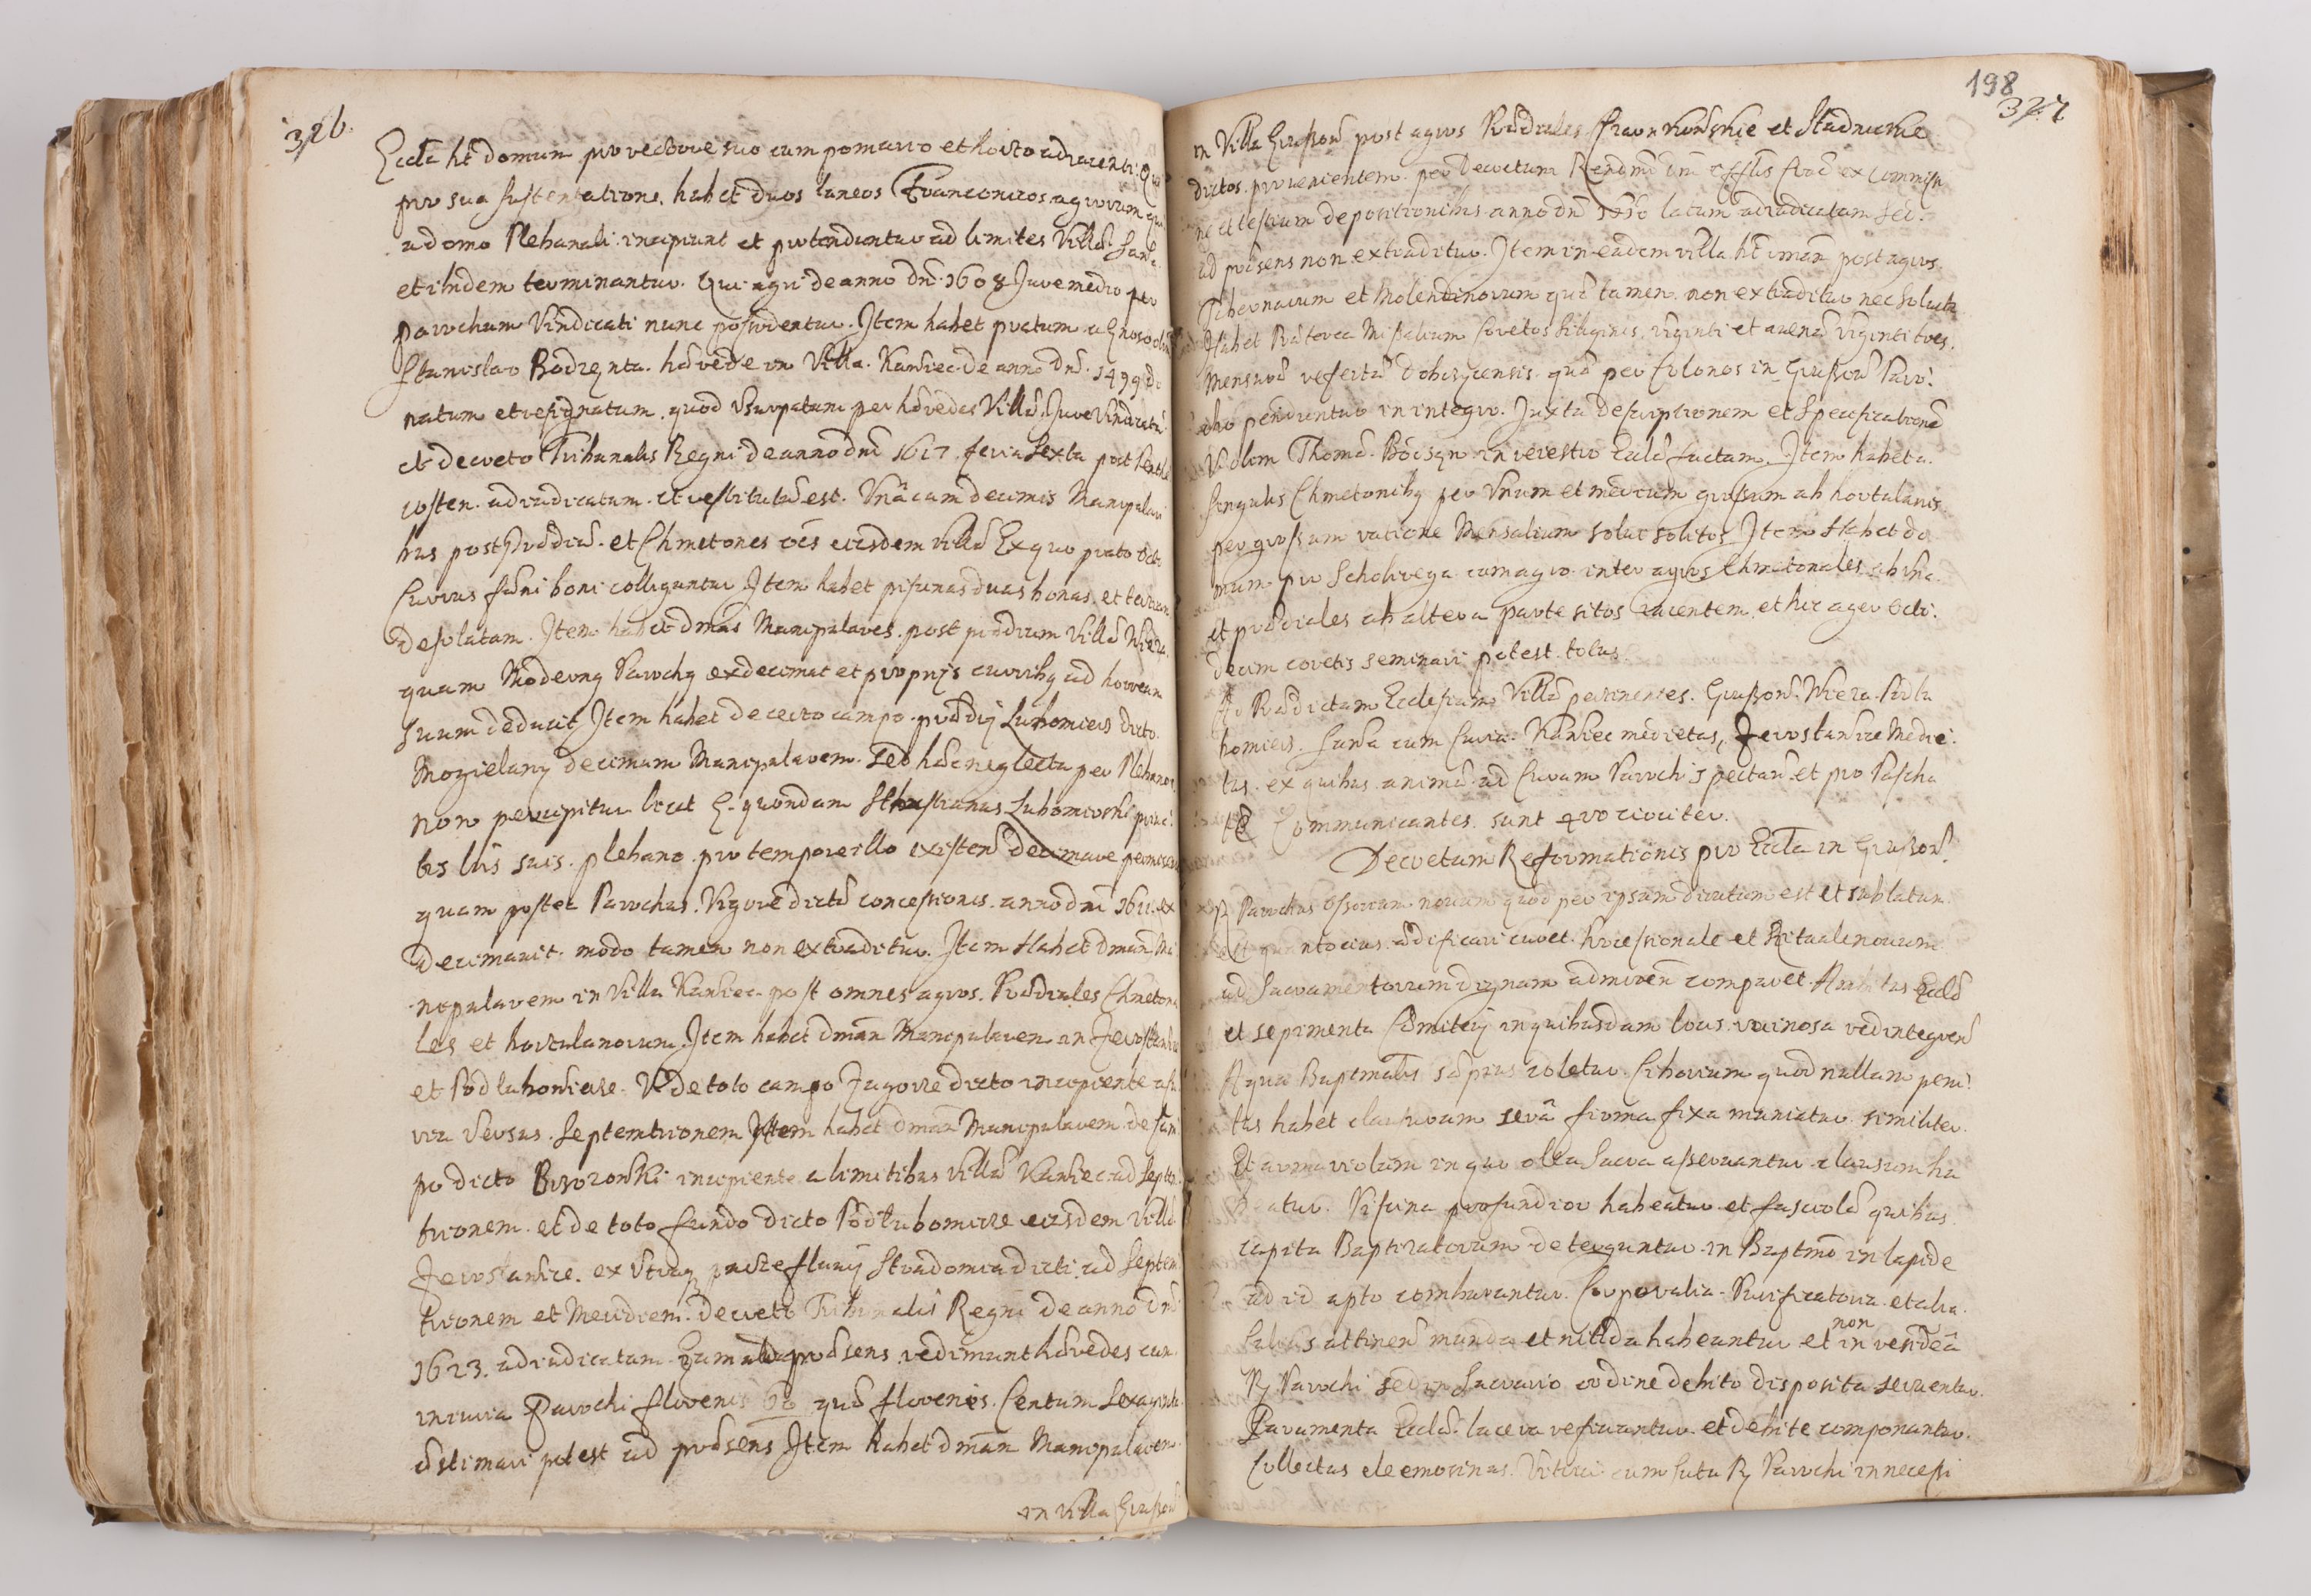 326.
Eccla ht domum pro rectore suo cum pomario et horto adiacenti. Qui
pro sua sustentatione. habet duos laneos Franconicos agrorum qui
a domo Plebanali incipiunt et protenduntur ad limites Villæ
et ibidem terminantur. Qui agri de anno dni 1608 Jure medio per
parochum Vindicati nunc possidentur. Item habet pratum a Gnoso olim
Stanislao Bodzenta hærede in Villa Kaniec de anno dni 1499 do
natum et resignatum. quod Usurpatum per hæredes Villæ. Jure Vindicatu
et decreto Tribunalis Regni de anno dni 1617 feria Sexta post Pente
costen. adiudicatum et restitutum est. Unâ cum decimis Manipulari
bus post prædia et Chmetones oes eiusdem villæ Ex quo prato octo
Currus fæni boni colliguntur Item habet piscinas duas bonas. et tertiam
desolatam. Item habet dmas Manipulares. post prædium Villæ Wiera.
quam Modernq Parochq exdecimat et proprijs curribq ad horreum
suum deducit Item habet de certo campo prædij Lubomierz dicto.
Mogielany decimam Manipularem. sed hæc neglecta per Plebanos.
non percipitur licet G. quondam Sebastianus Lubomirski
tis lris suis. plebano pro tempore illo existen decimare
quam postea Parochus. Vigore dictæ concessionis. anno dni 1611. ex
decimavit. modo tamen non extraditur. Item Habet dmam Ma
nipularem in Villa Kaniec. post omnes agros. Prædiales Chmetona
les et hortulanorum. Item habet dmam Manipularem in
et Podlubomierze. Ut de toto campo Zagorze dicto incipiente
via Versus. Septemtrionem Item habet dmam Manipularem. de Cam
po dicto incipiente a limitibus villæ Kaniec. ad Septe
trionem. et de toto fundo dicto Podlubomirze eiusdem Villæ
ex Utraq parte fluvij Stradomia dicti. ad Septem
trionem et Meridiem. decreto Tribunalis Regni de anno dni
1623. adiudicatam. ad præsens redimunt hæredes cum
iniuria Parochi florenis 60 quæ florenis. Centum Sexaginta.
æstimari potest ad præsens Item habet dmam Manipularem.
in Villa
198
327
in Villa post agros Prædiales et Stadnickie
dictos. provenientem. per decretum Rendmi dni Offlis ex commisio
ne et testium depositionibus anno dni latum adiudicatam Sed.
ad præsens non extraditur. Item in eadem villa ht dmam post agros
Tabernarum et Molendinorum quæ tamen. non extraditur nec Soluta
Habet Præterea Missalium Coretos Siliginis. viginti et avenæ Viginti tres.
Mensuræ refertæ Dobczycensis quæ per Colonos in Paro:
cho penduntur in integro. Juxta descriptionem et Specificationem
V. olim Thomæ in Eccle factam. Item habet a
Singulis Chmetonibq per Unum et medium grossum ab hortulanis
per grossum ratione Mensalium Solui Solitos Item Habet do
mum pro Scholirega cum agro inter agros Chmetonales ab una.
et prædiales ab altera parte sitos iacentem. et hic ager octo:
decim coretis seminari potest. totus.
Ad Prædictam Ecclesiam Villæ pertinentes. Wiera. Podlu
bomierz. cum Kaniec medietas, Medie:
tas. ex quibus animæ ad Curam Parochi spectan et pro Pascha
te Communicantes. sunt 400 circiter.
Decretum Reformationis pro Eccla in
R Parochus Ossorium novum quod per ipsum dirutum est et sublatum
quantocius ædificari curet. Processionale et Rituale novum
ad Sacramentorum dignam admiren comparet Ambitus Eccle
et sepimenta Cæmiterij in quibusdam locis ruinosa redintegren
Aqua Baptmalis sæpius coletur. Ciborium quod nullam peni:
tus habet clausuram serâ firma fixa muniatur. similiter.
Et armariolum in quo olea Sacra asservantur clausum ha
beatur. Piscina profundior habeatur et fasciolæ quibus
capita Baptizatorum deteguntur in Baptmo in lapide
ad id apto comburantur. Corporalia. Purificatoria. et alia.
attinen munda et nitida habeantur et non in reside
R Parochi sed in Sacrario ordine debito disposita serventur.
Paramenta Eccle: lacera reficiantur et debite componantur.
Collectas eleemosinas. Vitrici cum Scitu R Parochi in necessi